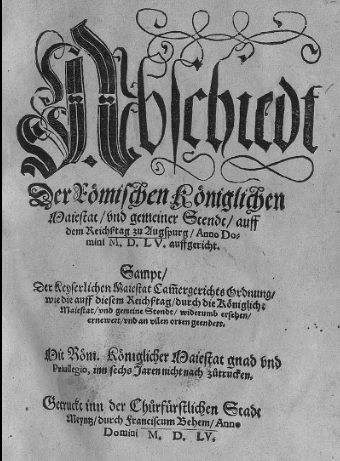 Abschiedt
Der Römischen Königlichen
Maiestat / vnd gemeiner Stende / auff
dem Reichstag zu Augspurg / Anno Do-
mini M. D. LV. auffgericht.
Sampt /
Der Keyserlichen Maiestat Cam̃ergerichts Ordnung /
wie die auff diesem Reichstag / durch die Königliche
Maiestat / vnd gemeine Stende / widerumb ersehen /
ernewert / vnd an vilen orten geendert.
Mit Röm. Königlicher Maiestat gnad vnd
Priuilegio, inn sechs Jaren nicht nach zůtrucken.
Getruckt inn der Chürfürstlichen Stadt
Meyntz / durch Franciscum Behem / Anno
Domini M. D. LV.